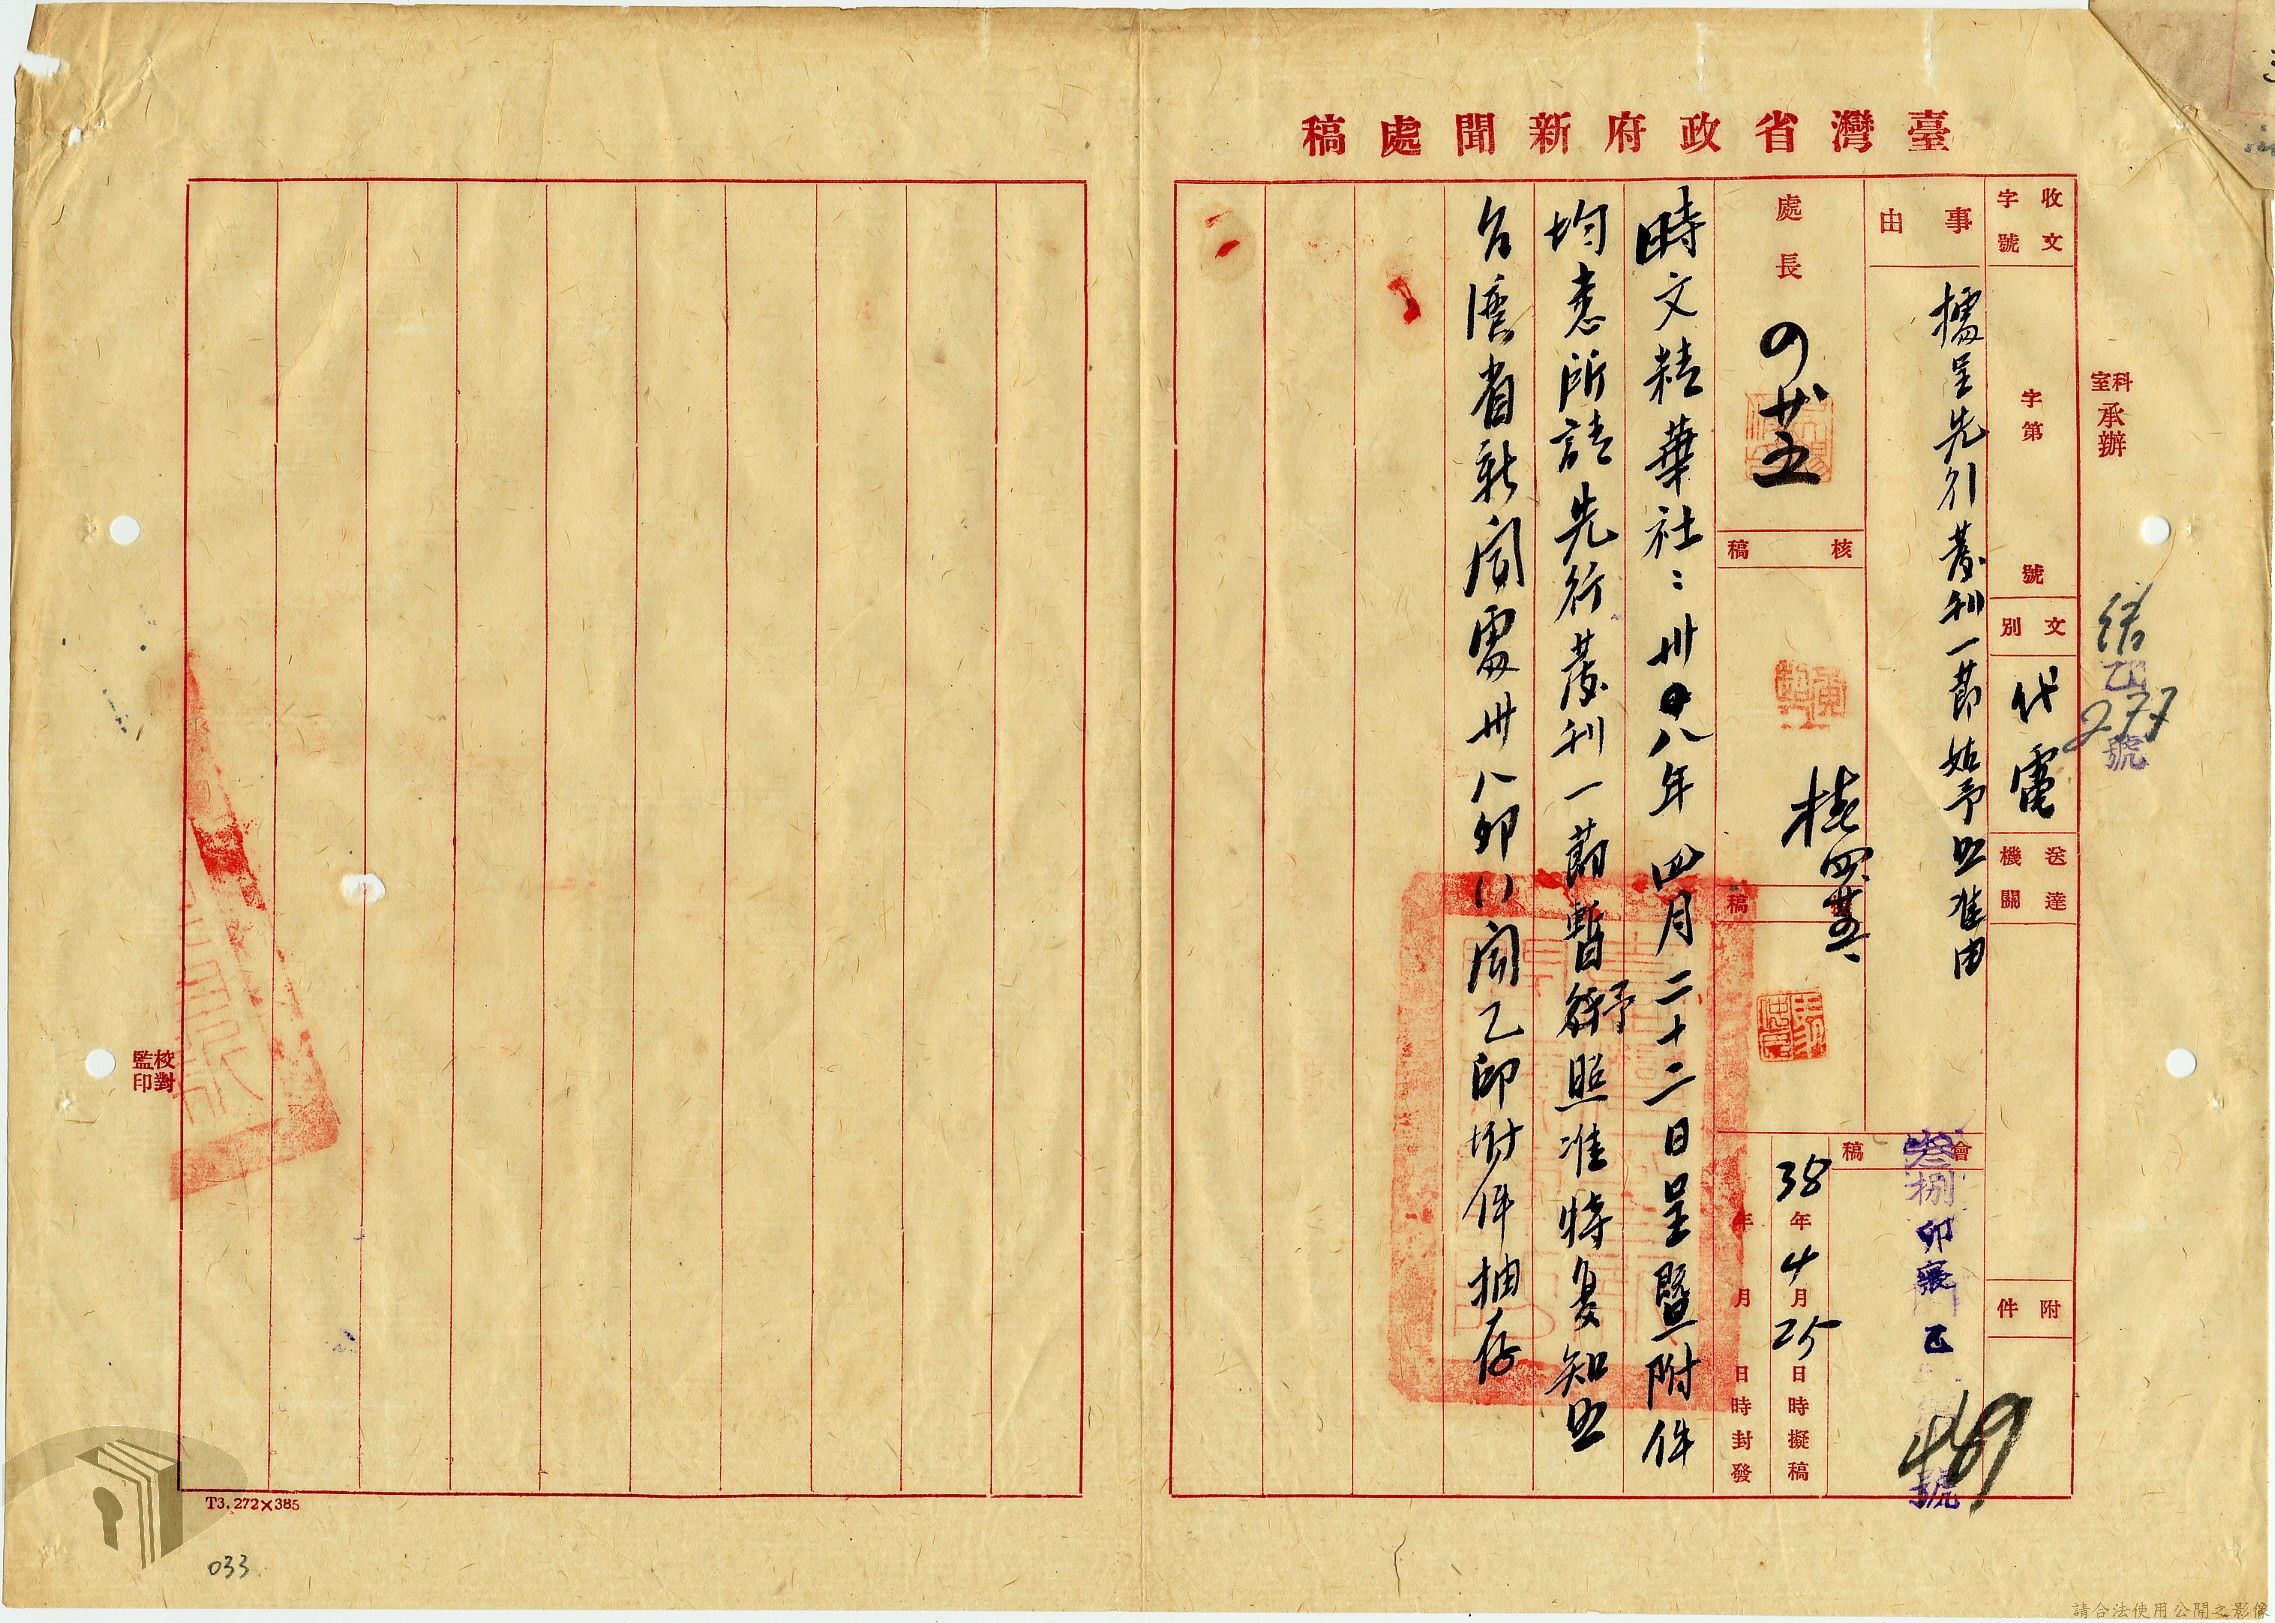 臺灣省政府新聞處稿
科室承辦
乙
277
號
收文字號
字第
號
文別
代電
送達機關
附件
事由
據呈先行發刊一節姑予照准由
會稿
叁捌卯寢
號
469
處長
四廿五
核稿
桂
四廿五
稿
38年4月25日時擬稿
年月日時封發
時文精華社：卅八年四月二十二日呈暨附件
均悉所請先行發刊一節暫予照准特復知照
台灣省新聞處卅八卯()聞乙印附件抽存
校對
監印
T3.272×385
033
請合法使用公開之影像